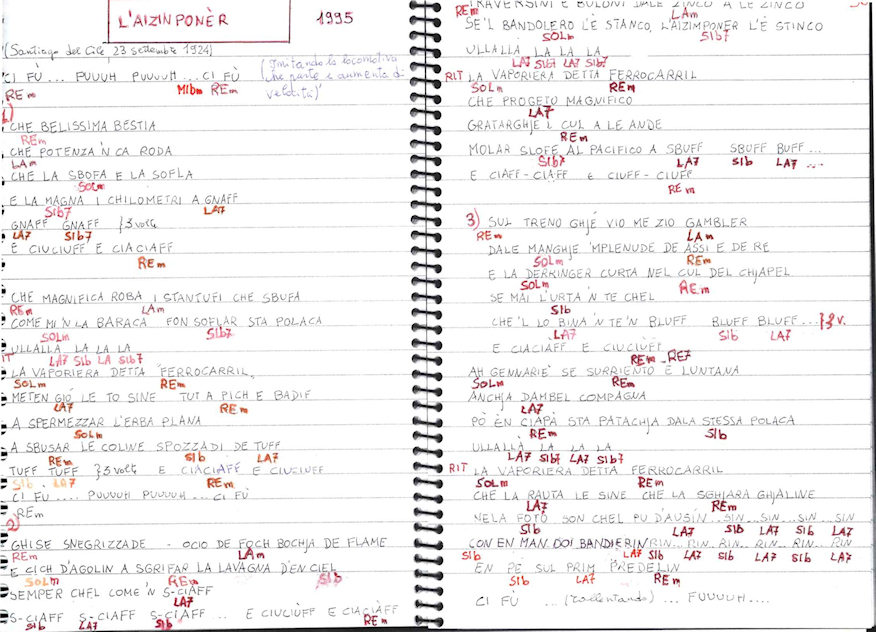 L'AIZINPONÈR 1995
(Santiago del Cile 23 settembre 1924)
CI FÙ ... PUUUH PUUUUH ... CI FÙ (Imitando la locomotiva
che parte e aumenta di
velocità)
REm MIbm REm
1)
CHE BELISSIMA BESTIA
REm
CHE POTENZA 'N CA RODA
LAm
CHE LA SBOFA E LA SOFLA
SOLm
E LA MAGNA I CHILOMETRI A GNAFF
SIb7 LA7
GNAFF GNAFF } 3 volte
LA7 SIb7
E CIUCIUFF E CIACIAFF
REm
CHE MAGNIFICA ROBA I STANTUFI CHE SBUFA
REm LAm
COME MI 'N LA BARACA FON SOFLAR STA POLACA
SOLm SIb7
ULLALLÀ LA LA LA
LA7 SIb LA SIb7
LA VAPORIERA DETTA FERROCARRIL,
SOLm REm
METEN GIÒ LE TO SINE TUT A PICH E BADIF
LA7 REm
A SPERMEZZAR L'ERBA PLANA
SOLm
A SBUSAR LE COLINE SPOZZADI DE TUFF
REm SIb LA7
TUFF TUFF } 3 volte E CIACIAFF E CIUCIUFF
SIb LA7 REm
CI FU .... PUUUUH PUUUUH ... CI FÙ
REm
2)
GHISE SNEGRIZZADE - OCIO DE FOCH BOCHJA DE FLAME
REm LAm
E CICH D'AGOLIN A SGRIFAR LA LAVAGNA D'EN CIEL
SOLm REm SIb
SEMPER CHEL COME 'N S-CIAFF
LA7
S-CIAFF S-CIAFF S-CIAFF ... E CIUCIÙFF E CIACIÀFF
SIb LA7 SIb REm
TRAVERSINI E BULONI DALE ZINCO A LE ZINCO
REm LAm
SE'L BANDOLERO L'È STANCO, L'AIZIMPONER L'È STINCO
SOLm SIb7
ULLALLÀ LA LA LA
LA7 SIb7 LA7 SIb7
RIT LA VAPORIERA DETTA FERROCARRIL
SOLm REm
CHE PROGETO MAGNIFICO
LA7
GRATARGHJE L CUL A LE ANDE
REm
MOLAR SLOFE AL PACIFICO A SBUFF SBUFF BUFF ...
SIb7 LA7 SIb LA7 ...
E CIAFF-CIAFF E CIUFF-CIUFF
REm
3) SUL TRENO GHJÈ VIO ME ZIO GAMBLER
REm LAm
DALE MANGHJE 'MPLENUDE DE ASSI E DE RE
SOLm REm
E LA DERRINGER CURTA NEL CUL DEL CHJAPEL
SOLm REm
SE MAI L'URTA 'N TE CHEL
SIb
CHE'L LO BINA 'N TE'N BLUFF BLUFF BLUFF ... } 3 V.
LA7 SIb LA7
E CIACIAFF E CIUCIUFF
REm - RE7
AH GENNARIE' SE SURRIENTO È LUNTANA
SOLm REm
ANCHJA DAMBEL COMPAGNA
LA7
PÒ ÈN CIAPÀ STA PATACHJA DALA STESSA POLACA
REm SIb
ULLALLÀ LA LA LA
LA7 SIb7 LA7 SIb7
RIT LA VAPORIERA DETTA FERROCARRIL
SOLm REm
CHE LA RAUTA LE SINE CHE LA SGHJARA GHJALINE
LA7 REm
NELA FOTO SON CHEL PU D'AUSIN ... SIN ... SIN ... SIN ... SIN
SIb LA7 SIb LA7 SIb LA7
CON EN MAN DOI BANDIERIN RIN ... RIN .. RIN ... RIN ... RIN
SIb LA7 SIb LA7 SIb LA7 SIb LA7
EN PÈ SUL PRIM PREDELIN
SIb LA7 REm
CI FÙ ... (rallentando) ... FUUUUH ....